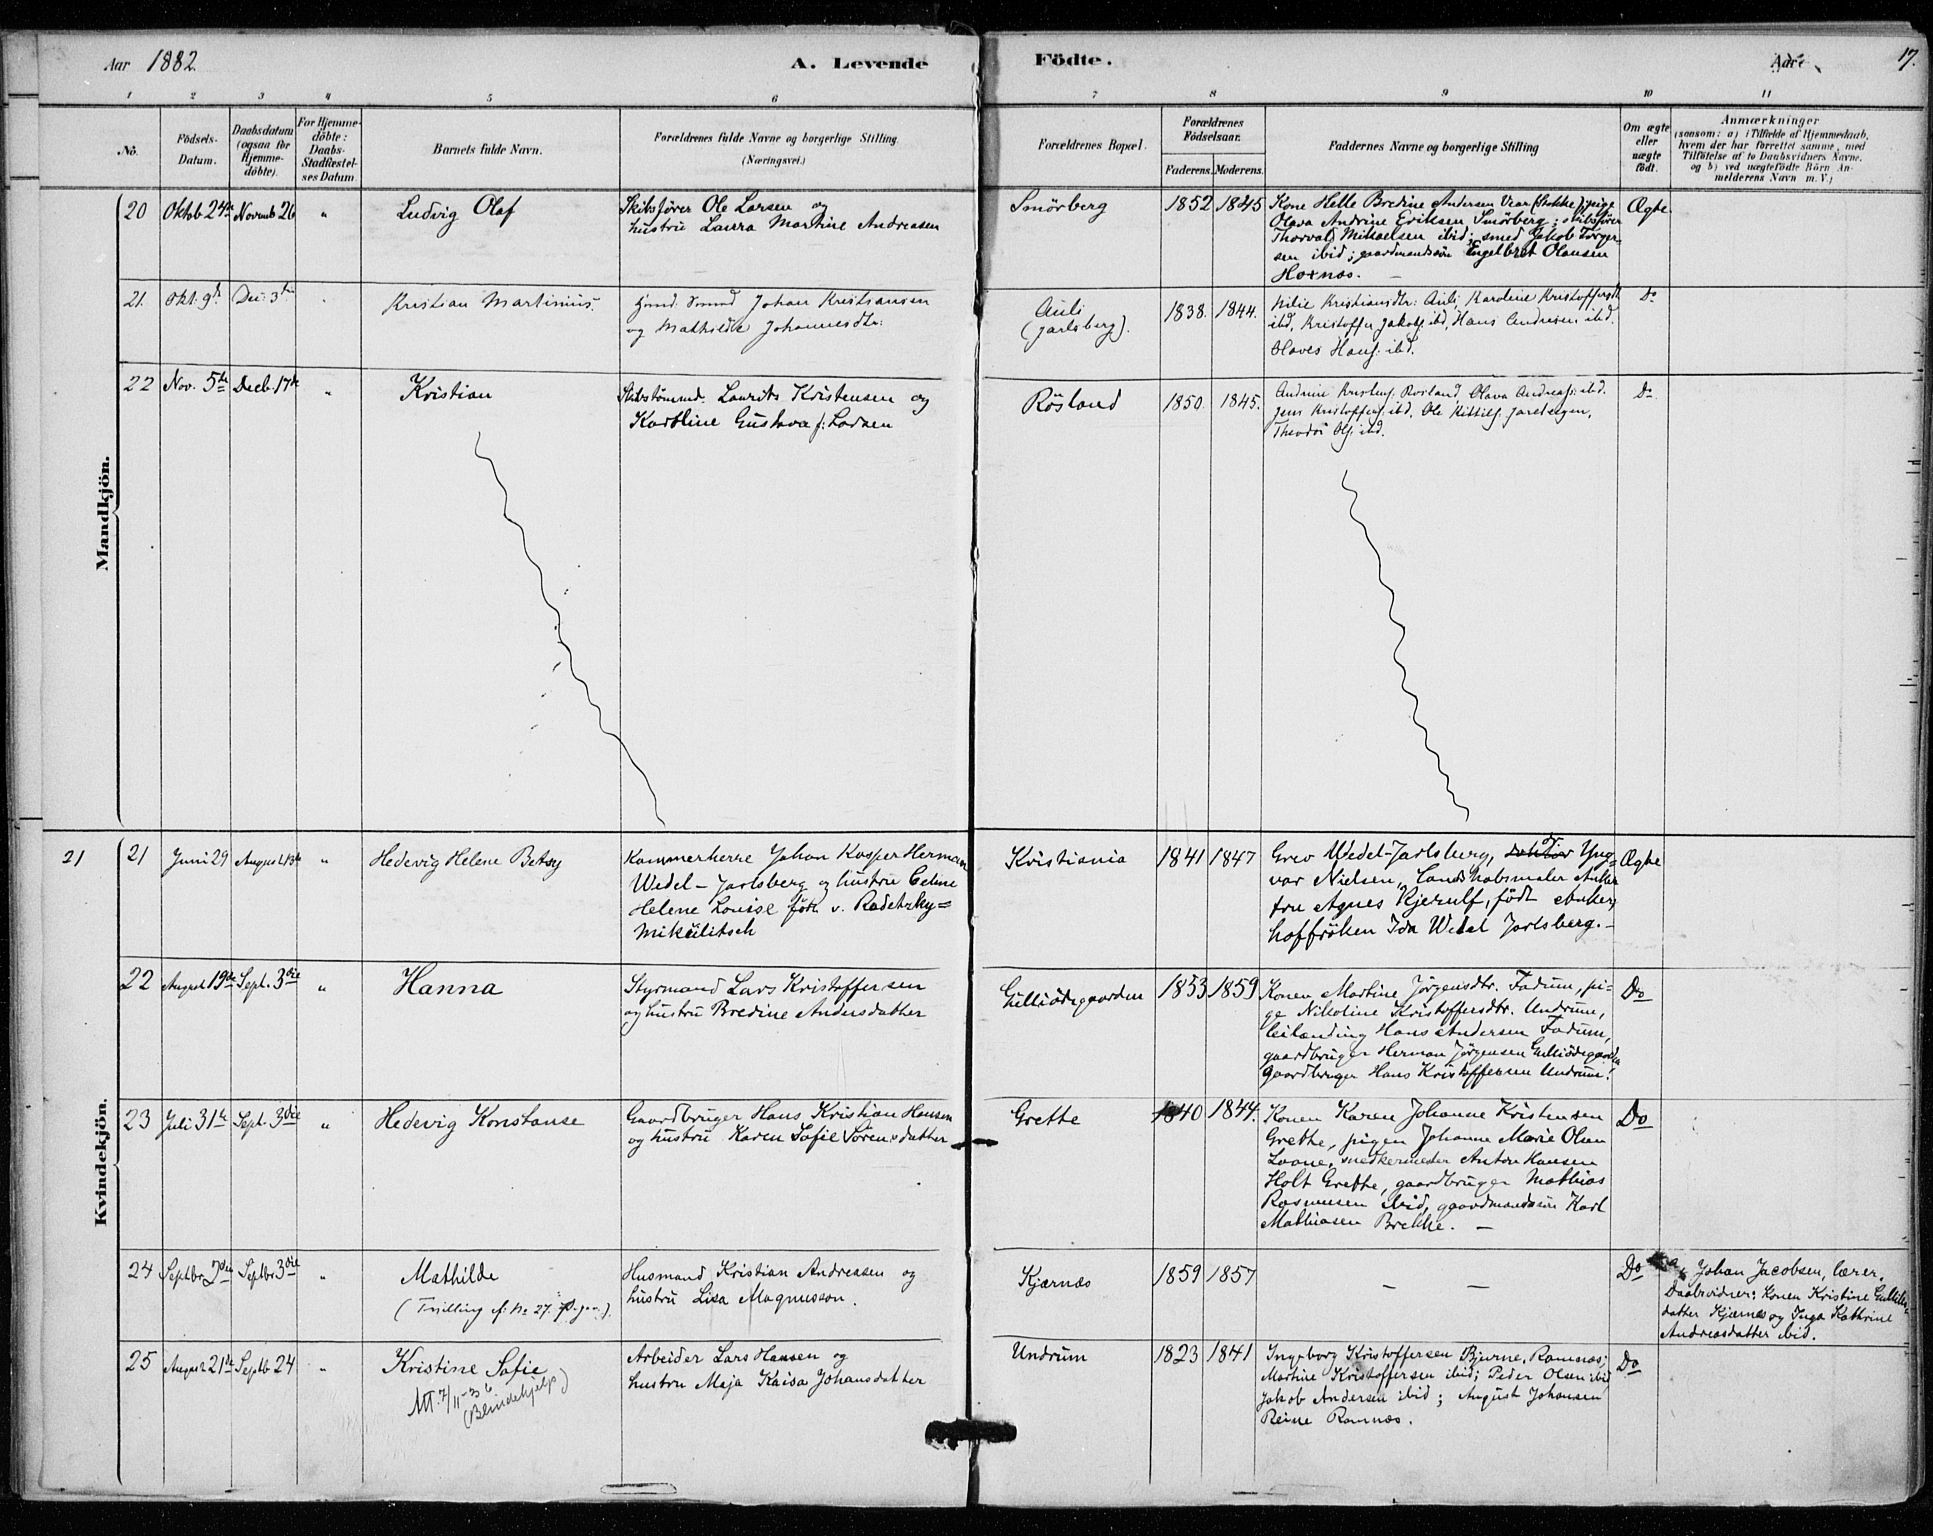 Aar 1882.
A. Levende Födte.
Aar
17.
1 2 3 4 5 6 7 8 9 10 11
No.
Födsels-Datum.
Daabsdatum (ogsaa for Hjemmedöbte).
For Hjemmedöbte: Daabs-Stadfæstelses Datum.
Barnets fulde Navn.
Forældrenes fulde Navne og borgerlige Stilling. (Næringsvei.)
Forældrenes Bopæl.
Forældrenes Födselsaar.
Faderens. Moderens.
Faddernes Navne og borgerlige Stilling
Om ægte eller uægte födt.
Anmærkninger
(saasom: a) i Tilfælde af Hjemmedaab,
hvem der har forrettet samme, med
Tilföielse af to Daabsvidners Navne,
og b) ved uægtefödte Börn Anmelderens Navn m. V.)
Mandkjön.
20 Oktob. 24de Novemb 26 " Ludvig Olaf
Skibsfører Ole Larsen og
hustru Laura Martine Andreasen
Smörberg 1852 1845
Kone Helle Bredine Andersen Vear (Stokke); pige
Olava Andrine Eriksen Smörberg; skibsfører
Thorvald Mikaelsen ibid; smed Jakob Torger-
sen ibid; gaardmandssøn Engelbret Olausen
Hoxnæs. —
Ægte
21. Okt. 9de Dec. 3die " Kristian Martinius.
Smed Johan Kristiansen
og Mathilde Johannesdtr.
Auli
(Jarlsberg).
1838. 1844.
Kristiansdtr. Auli, Karoline Kristoffersdtr
ibd, Kristoffer Jakobs. ibd, Hans Andresen ibd.
Olaves Hans. ibd.
Do
22 Nov. 5te Decb. 17de " Kristian
Skibstømmd. Laurits Kristensen og
Karoline Gustava f: Larsen
Röslund 1850. 1845.
Andrine Rosland, Olava Andreas. ibd.
Jens Kristoffers. ibd, Ole Kittils. Jareteigen,
Theodor Ols. ibd.
Do
Kvindekjön.
21
21 Juni 29 August 13de " Hedevig Helene Betsy
Kammerherre Johan Kasper Herman
Wedel-Jarlsberg og hustru Celine
Helene Louise født v. Radetzky-
Mikulitsch
Kristiania 1841 1847
Grev Wedel-Jarlsberg, Yng-
var Nielsen, Landskabsmaler Anker
fru Agnes Kjerulf, født Anker,
hoffröken Ida Wedel Jarlsberg. —
Ægte
22 August 19de Sept. 3die " Hanna
Styrmand Lars Kristoffersen
og hustru Bredine Andersdatter
Gulliödegaarden 1853 1859
Konen Martine Jørgensdtr. Fadum, pi-
ge Nikoline Kristoffersdtr. Undrum,
leilænding Hans Andersen Fadum,
gaardbruger Herman Jørgensen Gulliödegaarden
Gaardbruger Hans Kristoffersen Undrum.
Do
23 Juli 31te Sept. 3die " Hedevig Konstanse
Gaardbruger Hans Kristian Hansen
og hustru Karen Sofie Sørensdatter
Grette 1840 1844.
Konen Karen Johanne Kristensen
Grette, pigen Johanne Marie Olsen
snedkermester Anton Hansen
Holt Grette, gaardbruger Mathias
Rasmussen ibid, gaardmandssøn Karl
Mathiasen Brekke. —
Do
24 Septbr 2den Septbr 3die " Mathilde
(Tvilling cf. No 27. p. gen.).
Husmand Kristian Andreasen og
hustru Lisa Magnusson.
Kjærnæs 1859 1857
— —
Do
Johan Jacobsen, lærer.
Daabsvidner: konen Kristine Gulliks-
datter Kjærnæs og Inga Kathrine
Andreasdatter ibid.
25 August 21de Septb 24 " Kristine Sofie
Att. 7/11-36
(Blindehjelp)
Arbeider Lars Hansen og
hustru Maja Kaisa Johansdatter
Undrum 1823 1841
Ingeborg Kristoffersen Bjurne, Ramnæs;
Martine Kristoffersen ibid; Peder Olsen ibid
Jakob Andersen ibid; August Johansen
Reine Ramnæs.
Do